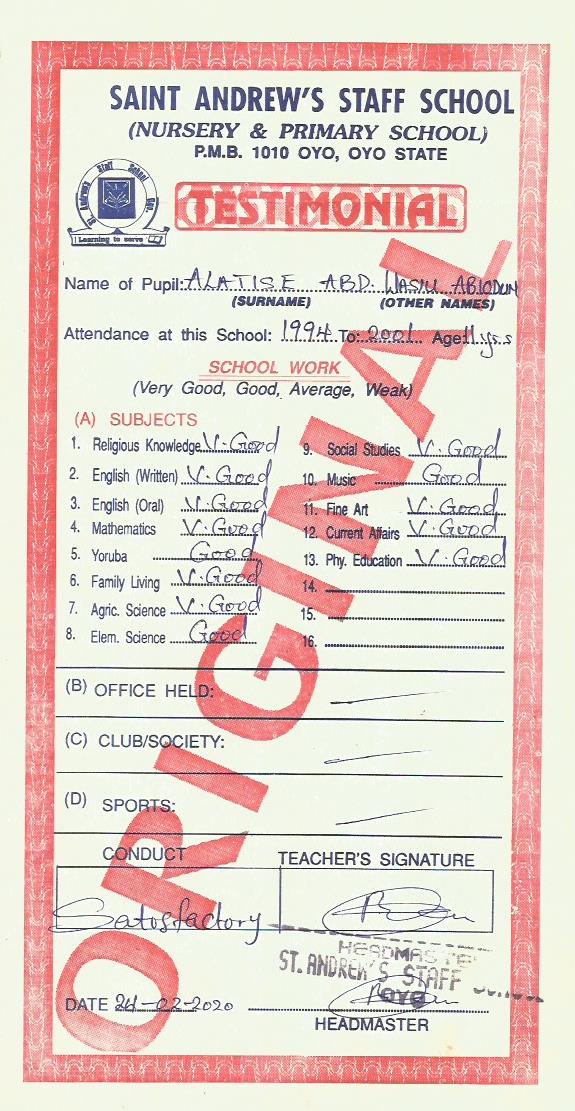 SAINT ANDREW'S STAFF SCHOOL
(NURSERY & PRIMARY SCHOOL)
P.M.B. 1010 OYO, OYO STATE
St. Andrew's Staff School Oyo.
Learning to serve
TESTIMONIAL
ORIGINAL
Name of Pupil: ALATISE ABD. WASIU ABIODUN
(SURNAME) (OTHER NAMES)
Attendance at this School: 1994 To: 2001 Age 11 yrs
SCHOOL WORK
(Very Good, Good, Average, Weak)
(A) SUBJECTS
1. Religious Knowledge V. Good
2. English (Written) V. Good
3. English (Oral) V. Good
4. Mathematics V. Good
5. Yoruba Good
6. Family Living V. Good
7. Agric. Science V. Good
8. Elem. Science Good
9. Social Studies V. Good
10. Music Good
11. Fine Art V. Good
12. Current Affairs V. Good
13. Phy. Education V. Good
14.
15.
16.
(B) OFFICE HELD:
(C) CLUB/SOCIETY:
(D) SPORTS:
CONDUCT TEACHER'S SIGNATURE
Satisfactory
HEADMASTE
ST. ANDREW'S STAFF SCHOOL
OYO
DATE 24-02-2020
HEADMASTER